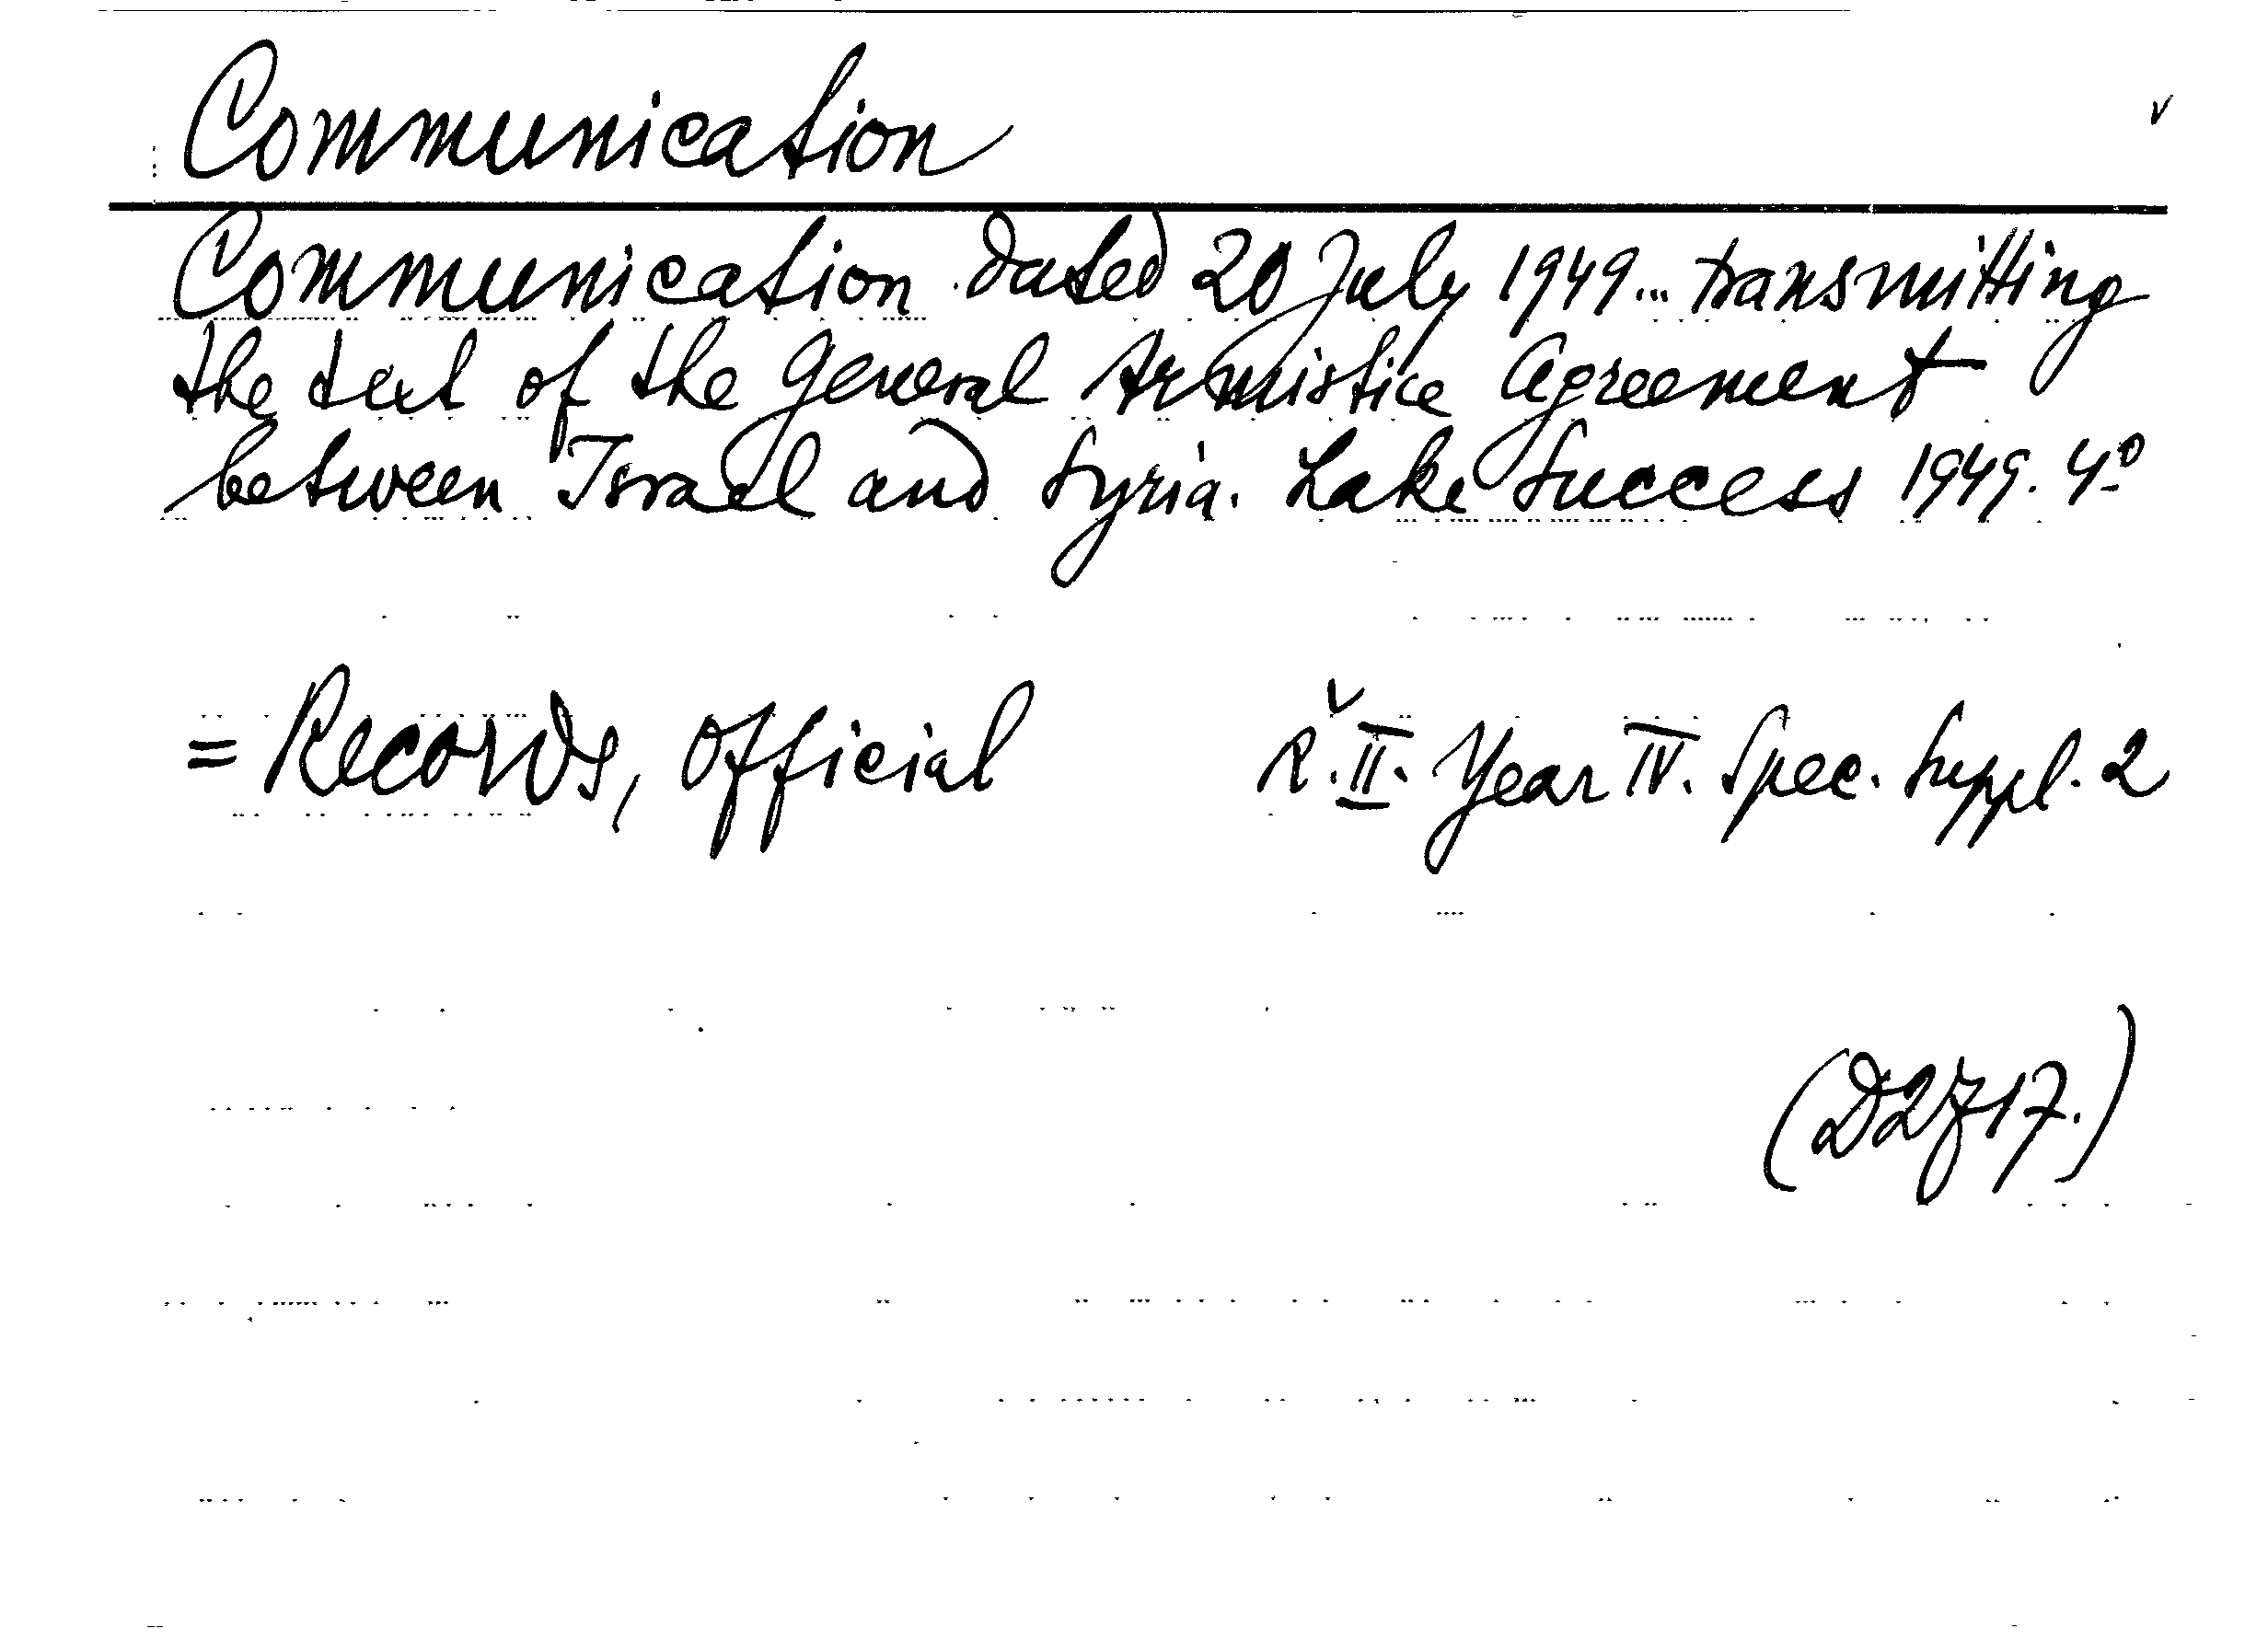 Communication
Communication dated 20 July 1949... transmitting
the text of the General Armistice Agreement
between Israel and Syria. Lake Success 1949. 4º
= Records, Official R. II. Year IV. Spec. Suppl. 2
(D2717.)